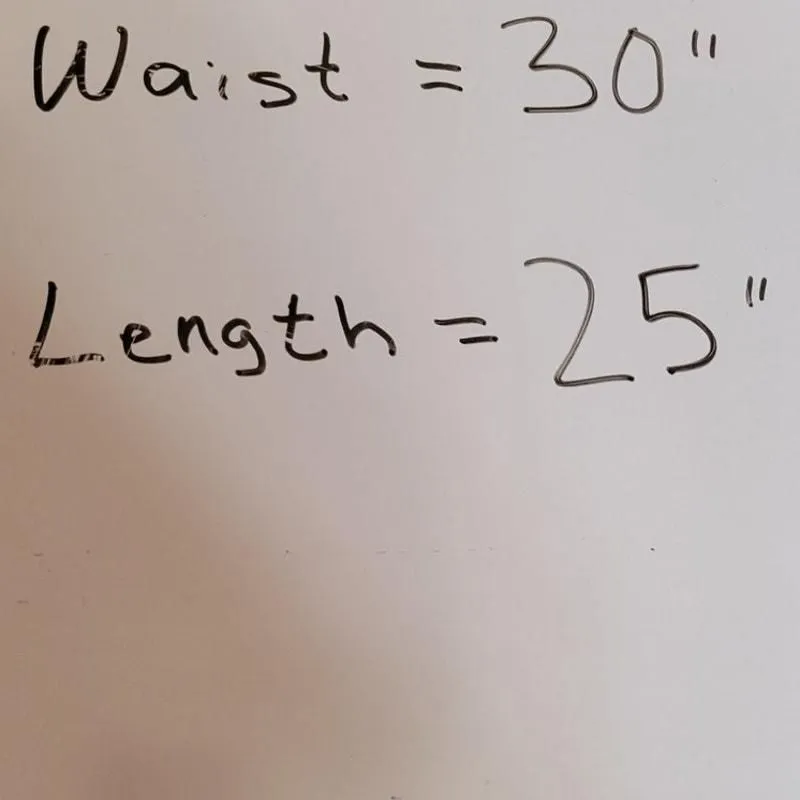 Waist = 30"
Length = 25"